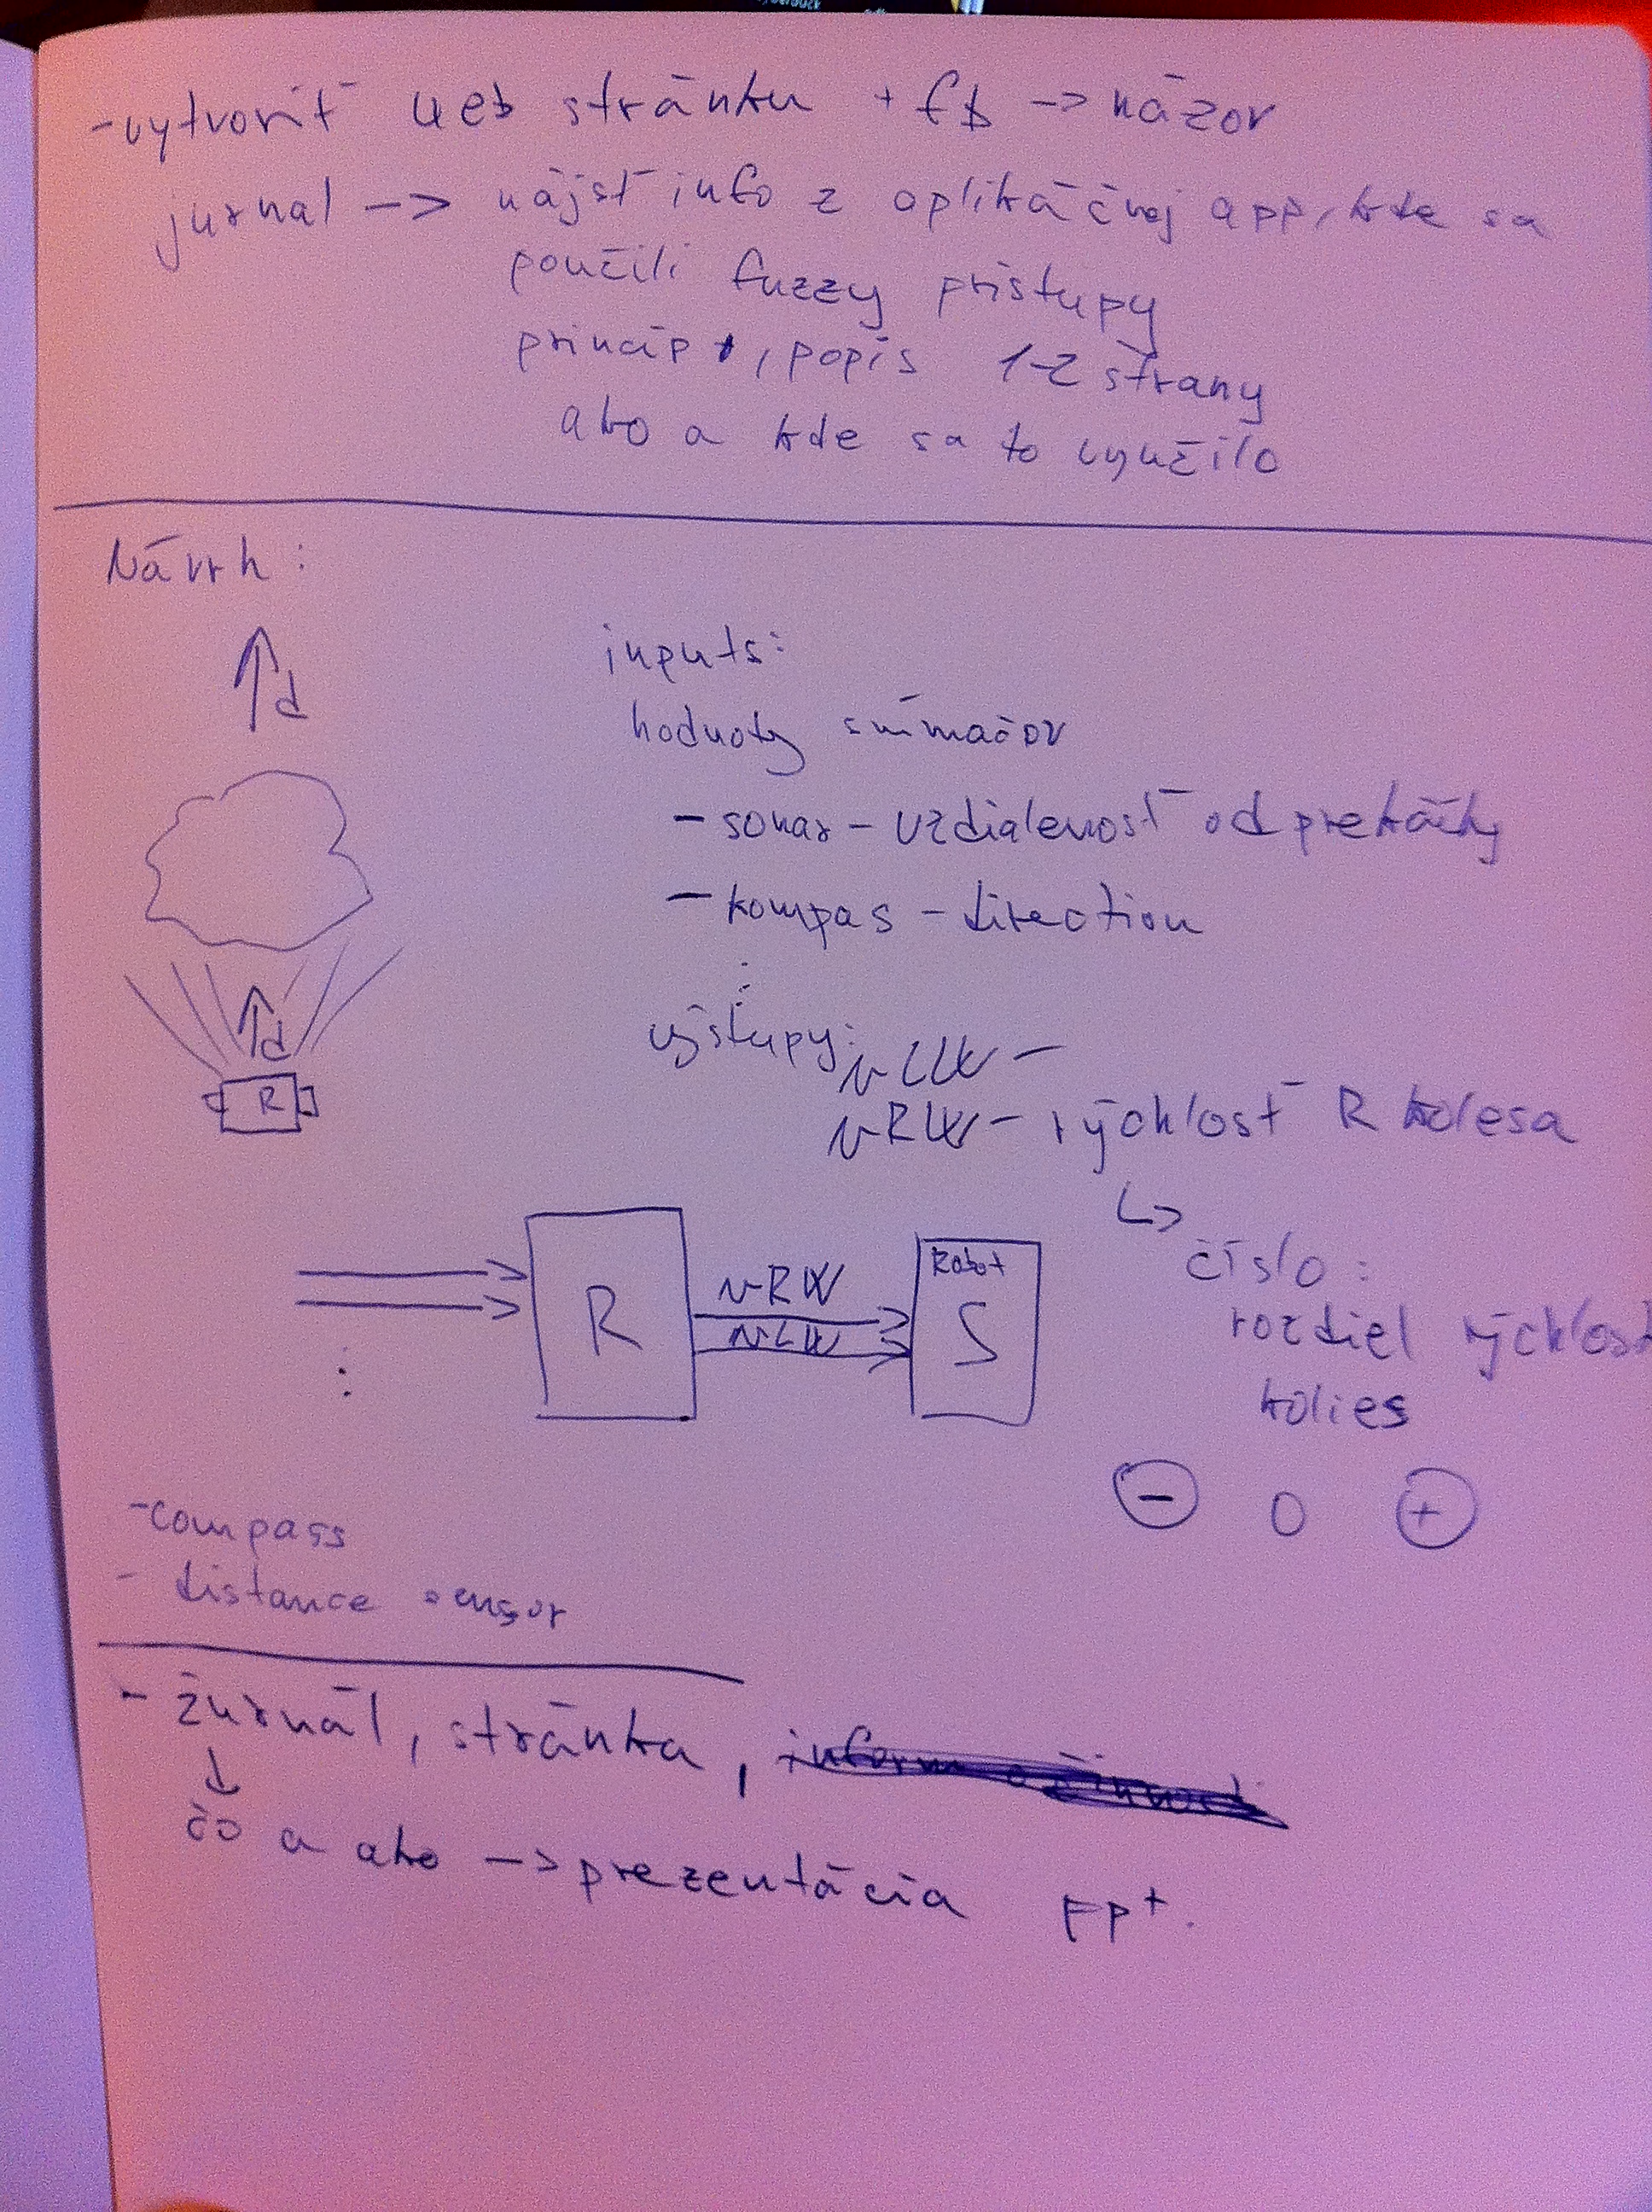 - vytvoriť web stránku + fb -> názor
jurnal -> nájsť info z aplikáčnej app, kde sa
použili fuzzy prístupy
princíp, popis 1-2 strany
ako a kde sa to využilo
Návrh :
d
inputs:
hodnoty snímačov
- sonar - vzdialenosť od prekážky
- kompas - direction
d
R
výstupy:
vLW -
vRW - rýchlosť R kolesa
číslo :
rozdiel rýchlosti
kolies
- 0 +
R
vRW
vLW
Robot
S
- compass
- distance sensor
- žurnál, stránka,
čo a ako -> prezentácia